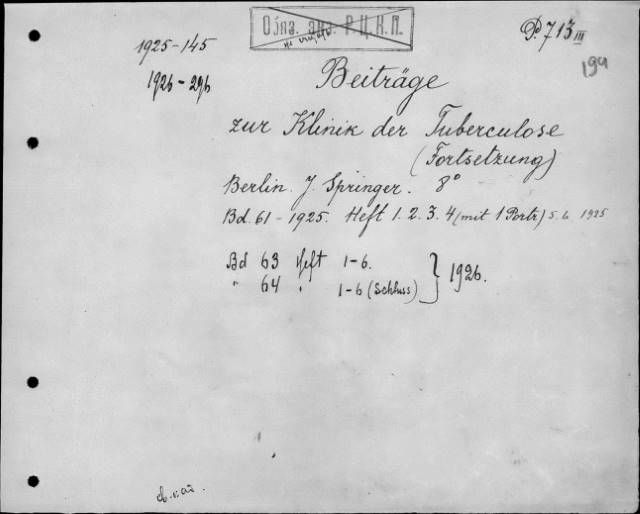 Обяз. экз. Р.Ц.К.П.
P. 713 III
1925-145
1926-296
194
Beiträge
zur Klinik der Tuberculose
(Fortsetzung)
Berlin. J. Springer. 8°
Bd. 61 - 1925. Heft 1. 2. 3. 4 (mit 1 Portr) 5. 6 1925
Bd 63 Heft 1-6.
" 64 " 1-6 (Schluss) } 1926.